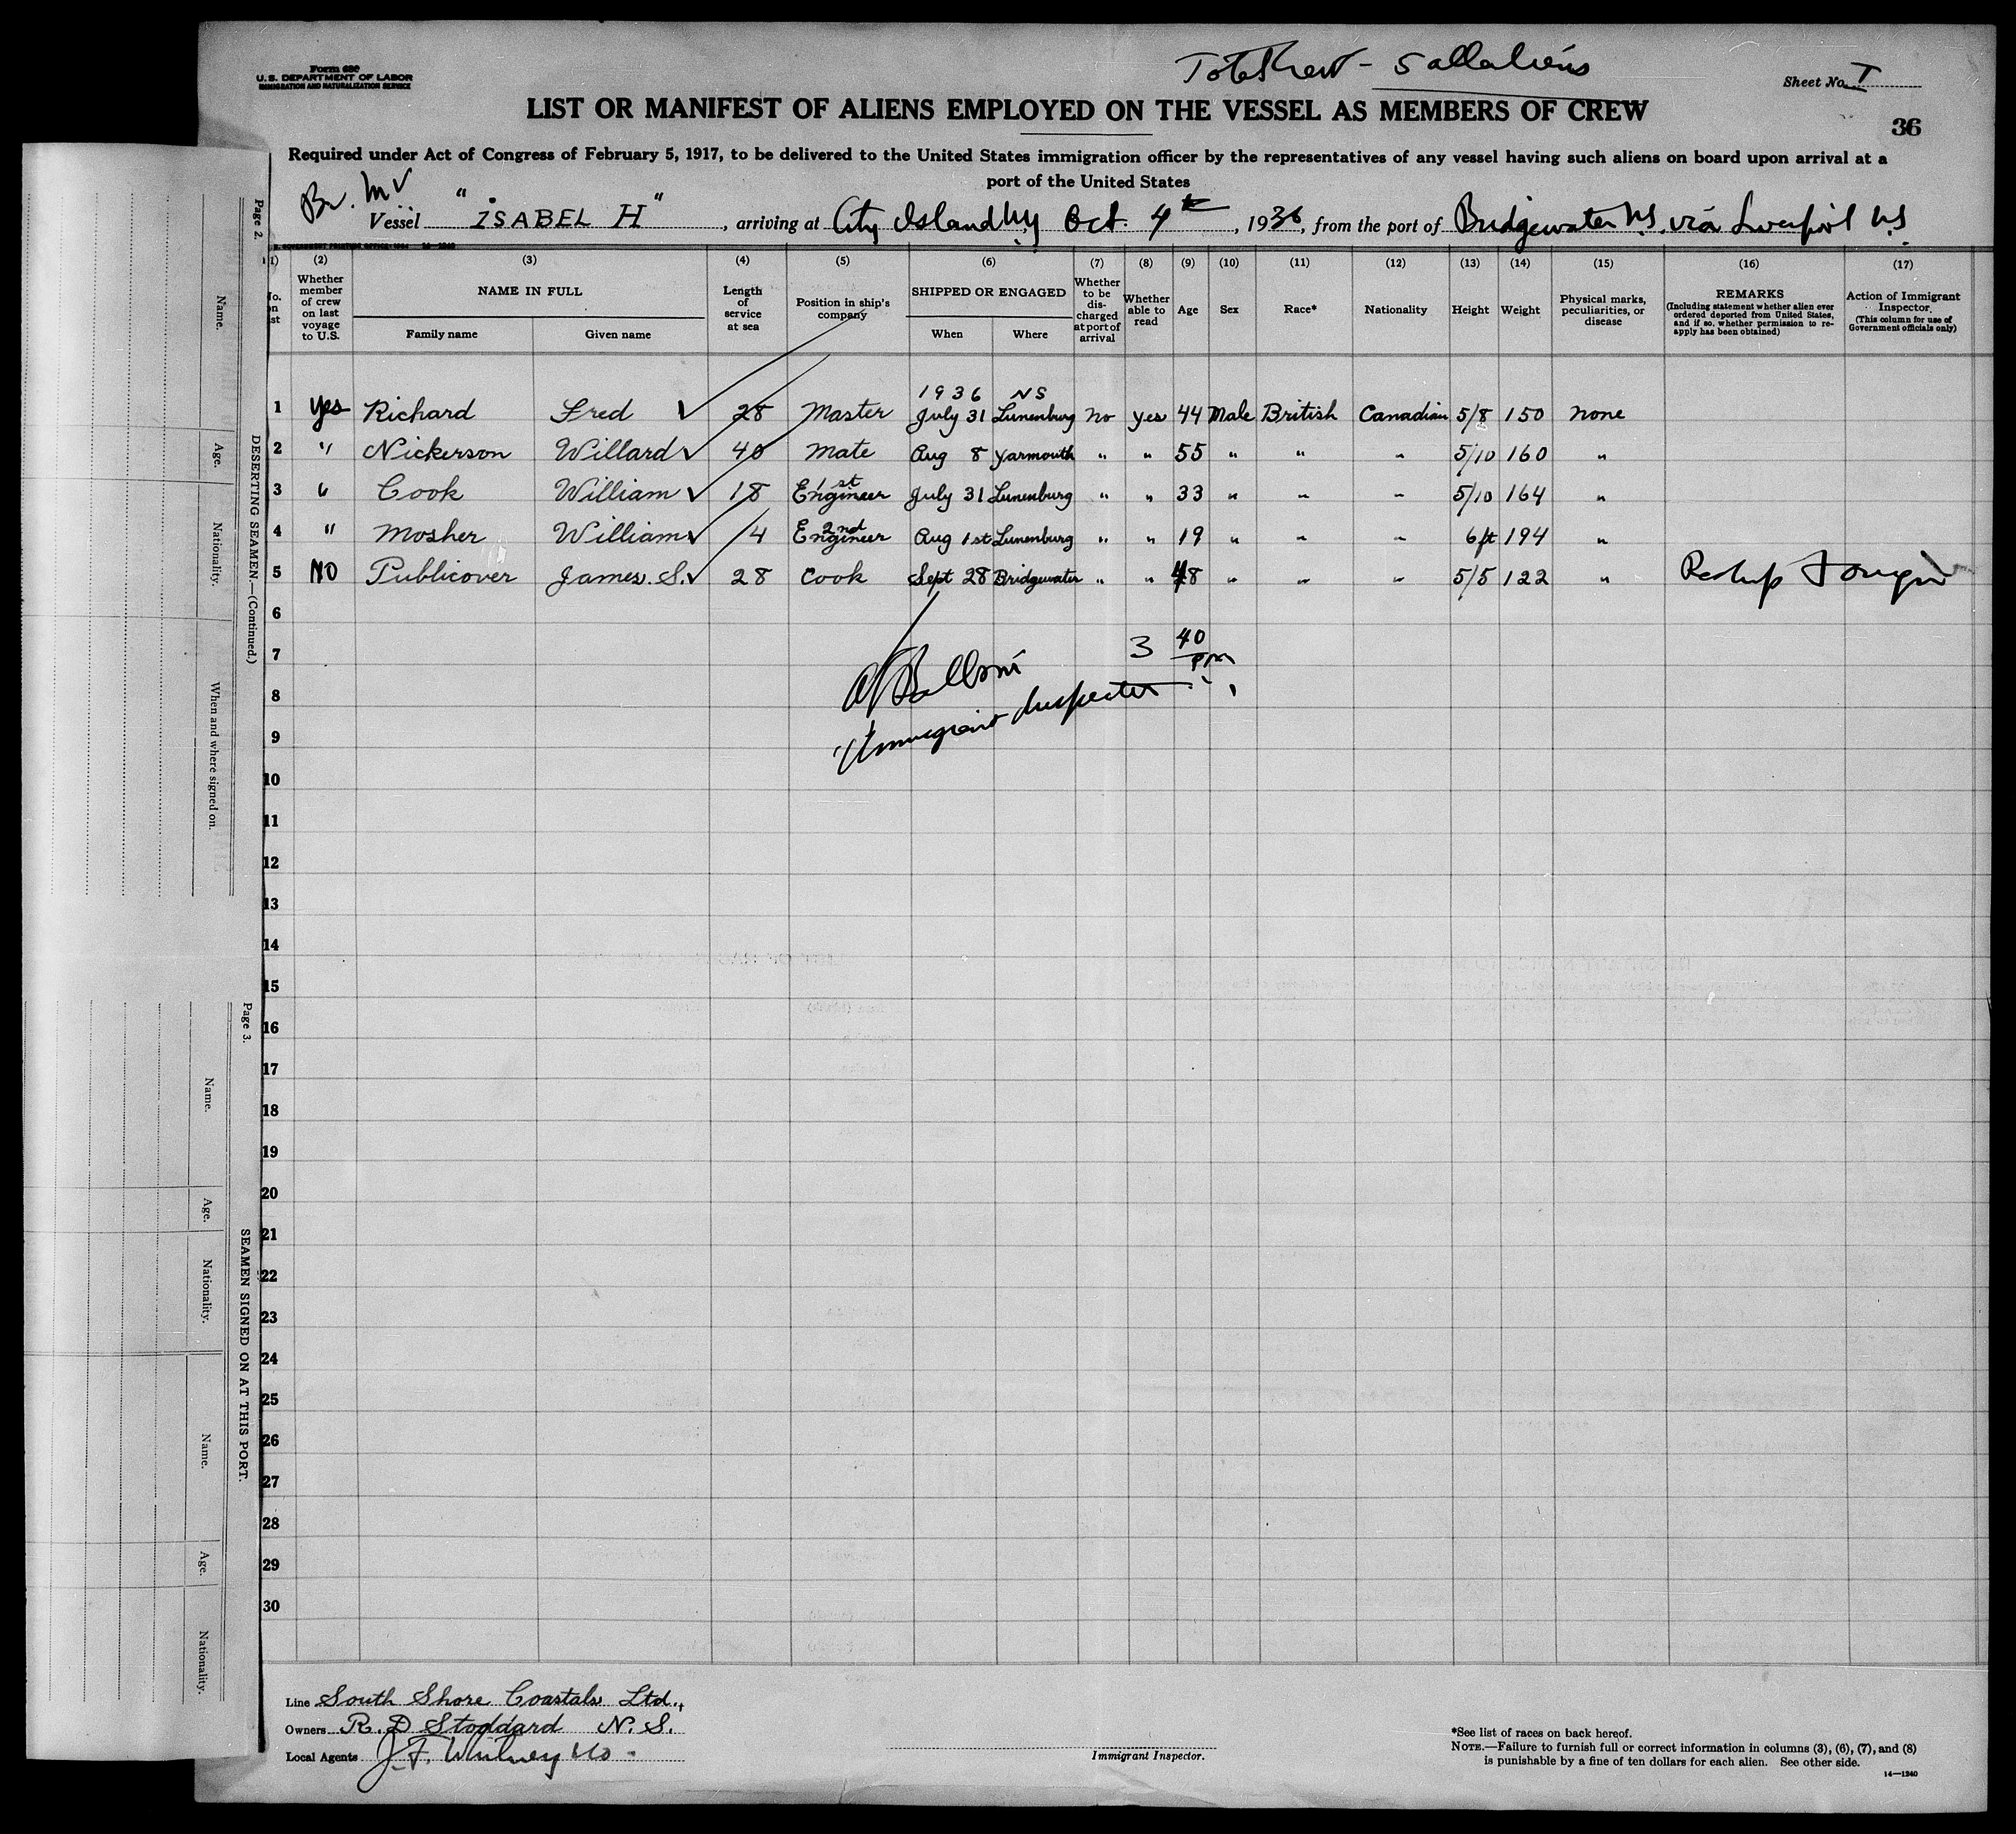 Form 680
U. S. DEPARTMENT OF LABOR
IMMIGRATION AND NATURALIZATION SERVICE
Total Crew - 5 all aliens
Sheet No. 1
LIST OR MANIFEST OF ALIENS EMPLOYED ON THE VESSEL AS MEMBERS OF CREW
36
Required under Act of Congress of February 5, 1917, to be delivered to the United States immigration officer by the representatives of any vessel having such aliens on board upon arrival at a
port of the United States
Br. M V
Vessel "ISABEL H", arriving at City Island NY Oct. 4th, 1936, from the port of Bridgewater N.S. via Liverpool N.S.
U. S. GOVERNMENT PRINTING OFFICE 14-1240
(1) (2) (3) (4) (5) (6) (7) (8) (9) (10) (11) (12) (13) (14) (15) (16) (17)
No. on list
Whether member of crew on last voyage to U.S.
NAME IN FULL
Family name Given name
Length of service at sea
Position in ship's company
SHIPPED OR ENGAGED
When Where
Whether to be discharged at port of arrival
Whether able to read
Age
Sex
Race*
Nationality
Height
Weight
Physical marks, peculiarities, or disease
REMARKS
(Including statement whether alien ever ordered deported from United States, and if so, whether permission to reapply has been obtained)
Action of Immigrant Inspector.
(This column for use of Government officials only)
1936 NS
1 Yes Richard Fred ✓ 28 Master July 31 Lunenburg No Yes 44 Male British Canadian 5/8 150 None
2 " Nickerson Willard ✓ 40 Mate Aug 8 Yarmouth " " 55 " " " 5/10 160 "
3 " Cook William ✓ 18 1st Engineer July 31 Lunenburg " " 33 " " " 5/10 164 "
4 " Mosher William ✓ 1/4 2nd Engineer Aug 1st Lunenburg " " 19 " " " 6 ft 194 "
5 NO Publicover James. S. ✓ 28 Cook Sept 28 Bridgewater " " 48 " " " 5/5 122 " Reship Foreign
6
7
8
9
10
11
12
13
14
15
16
17
18
19
20
21
22
23
24
25
26
27
28
29
30
3 40 pm
Immigrant Inspector
Line South Shore Coastals Ltd.,
Owners R. D Stoddard N. S.
Local Agents J. F. Whitney & Co.
Immigrant Inspector.
*See list of races on back hereof.
NOTE.—Failure to furnish full or correct information in columns (3), (6), (7), and (8)
is punishable by a fine of ten dollars for each alien. See other side.
14—1240
Page 2.
DESERTING SEAMEN.—(Continued.)
Name.
Age.
Nationality.
When and where signed on.
Page 3.
SEAMEN SIGNED ON AT THIS PORT.
Name.
Age.
Nationality.
Name.
Age.
Nationality.